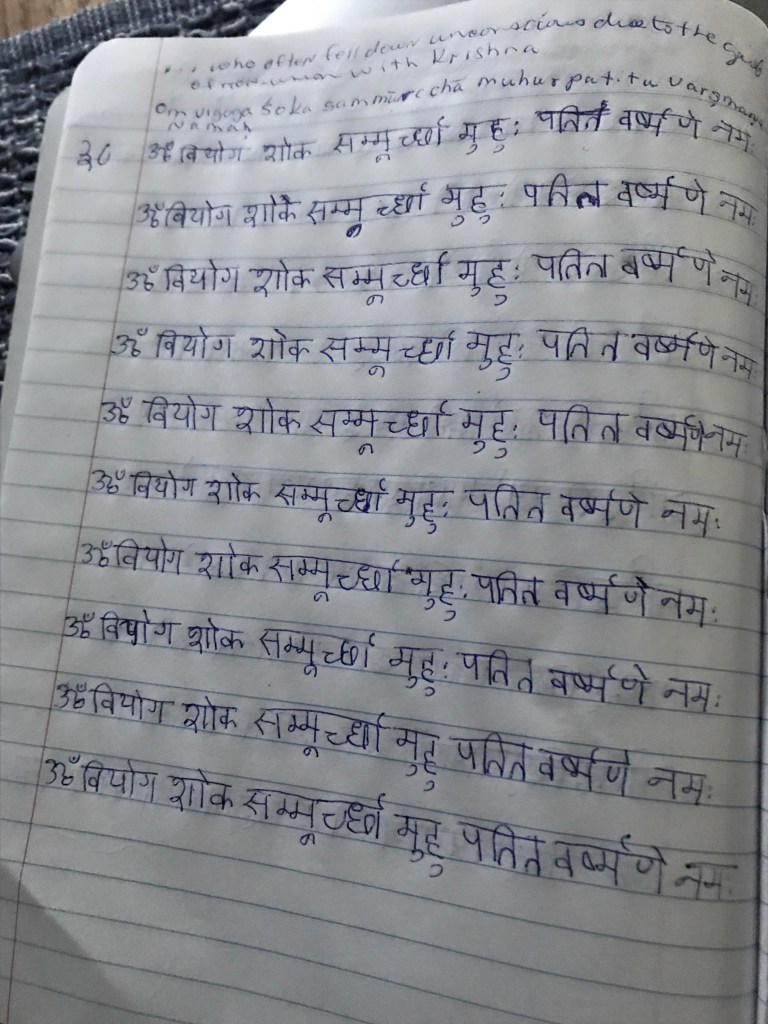 ... who often fell down unconscious due to the grief
of non-union with Krishna
Om viyoga śoka sammūrcchā muhur patita varṣmaṇe
Namaḥ
३८ ॐ वियोग शोक सम्मूर्च्छा मुहुः पतित वर्ष्मणे नमः
ॐ वियोग शोक सम्मूर्च्छा मुहुः पतित वर्ष्मणे नमः
ॐ वियोग शोक सम्मूर्च्छा मुहुः पतित वर्ष्मणे नमः
ॐ वियोग शोक सम्मूर्च्छा मुहुः पतित वर्ष्मणे नमः
ॐ वियोग शोक सम्मूर्च्छा मुहुः पतित वर्ष्मणे नमः
ॐ वियोग शोक सम्मूर्च्छा मुहुः पतित वर्ष्मणे नमः
ॐ वियोग शोक सम्मूर्च्छा मुहुः पतित वर्ष्मणे नमः
ॐ वियोग शोक सम्मूर्च्छा मुहुः पतित वर्ष्मणे नमः
ॐ वियोग शोक सम्मूर्च्छा मुहु पतित वर्ष्मणे नमः
ॐ वियोग शोक सम्मूर्च्छा मुहु पतित वर्ष्मणे नमः